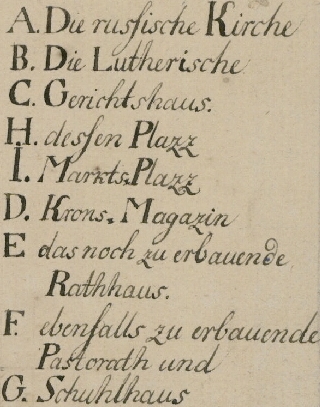 A. Die russische Kirche
B. Die Lutherische
C. Gerichtshaus.
H. dessen Plazz
I. Markts=Plazz
D. Krons=Magazin
E das noch zu erbauende
Rathhaus.
F. ebenfalls zu erbauende
Pastorath und
G. Schuhlhaus